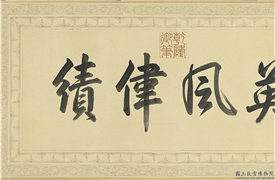 英風偉績
乾隆御筆
國立故宮博物院